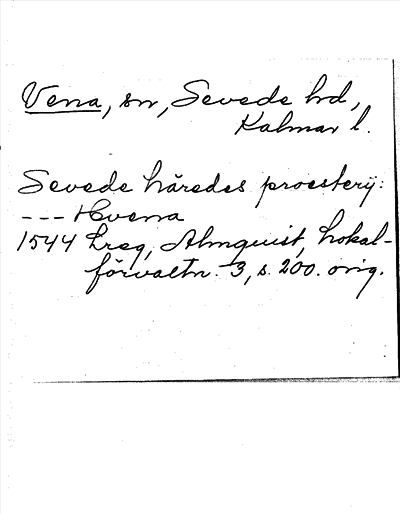 Vena, sn, Sevede hd,
Kalmar l.
Sevede häredes proesterij:
--- Hvena
1544 Lreg, Almquist, Lokal-
förvaltn. 3, s. 200. orig.